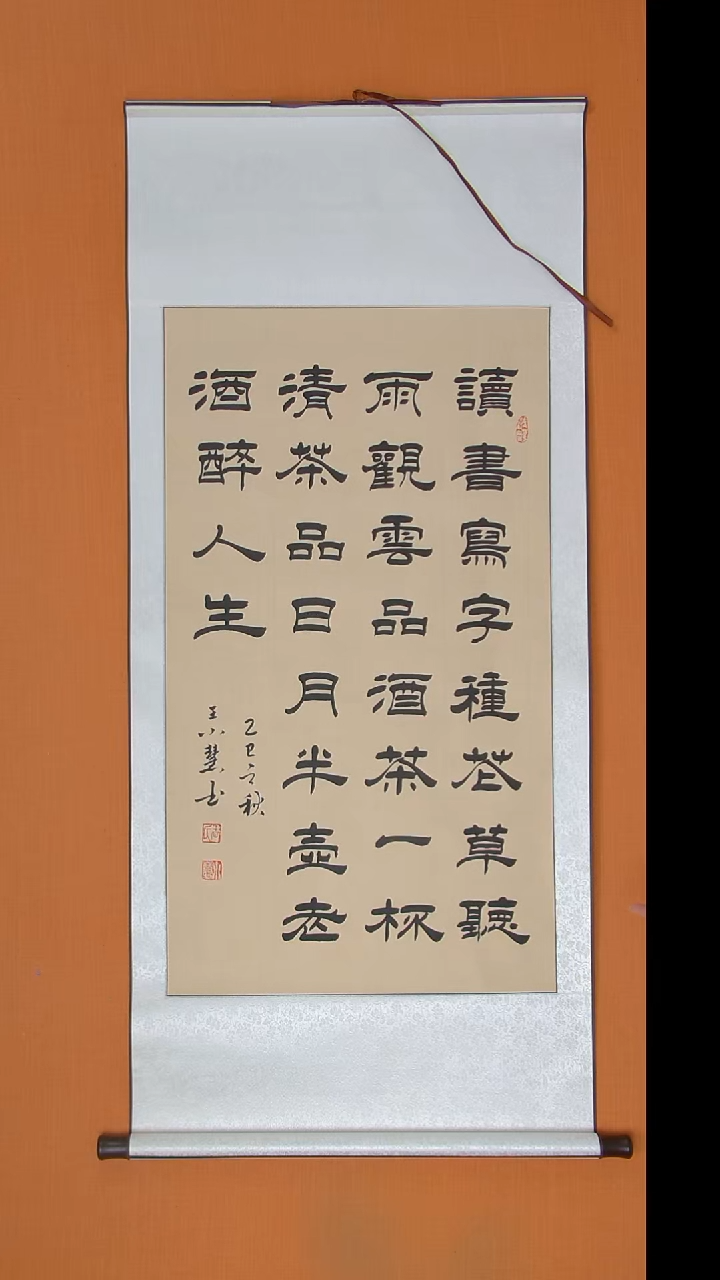 讀書寫字種花草聽
雨觀雲品酒茶一杯
清茶品日月半壺老
酒醉人生
乙巳之秋
王小慧书